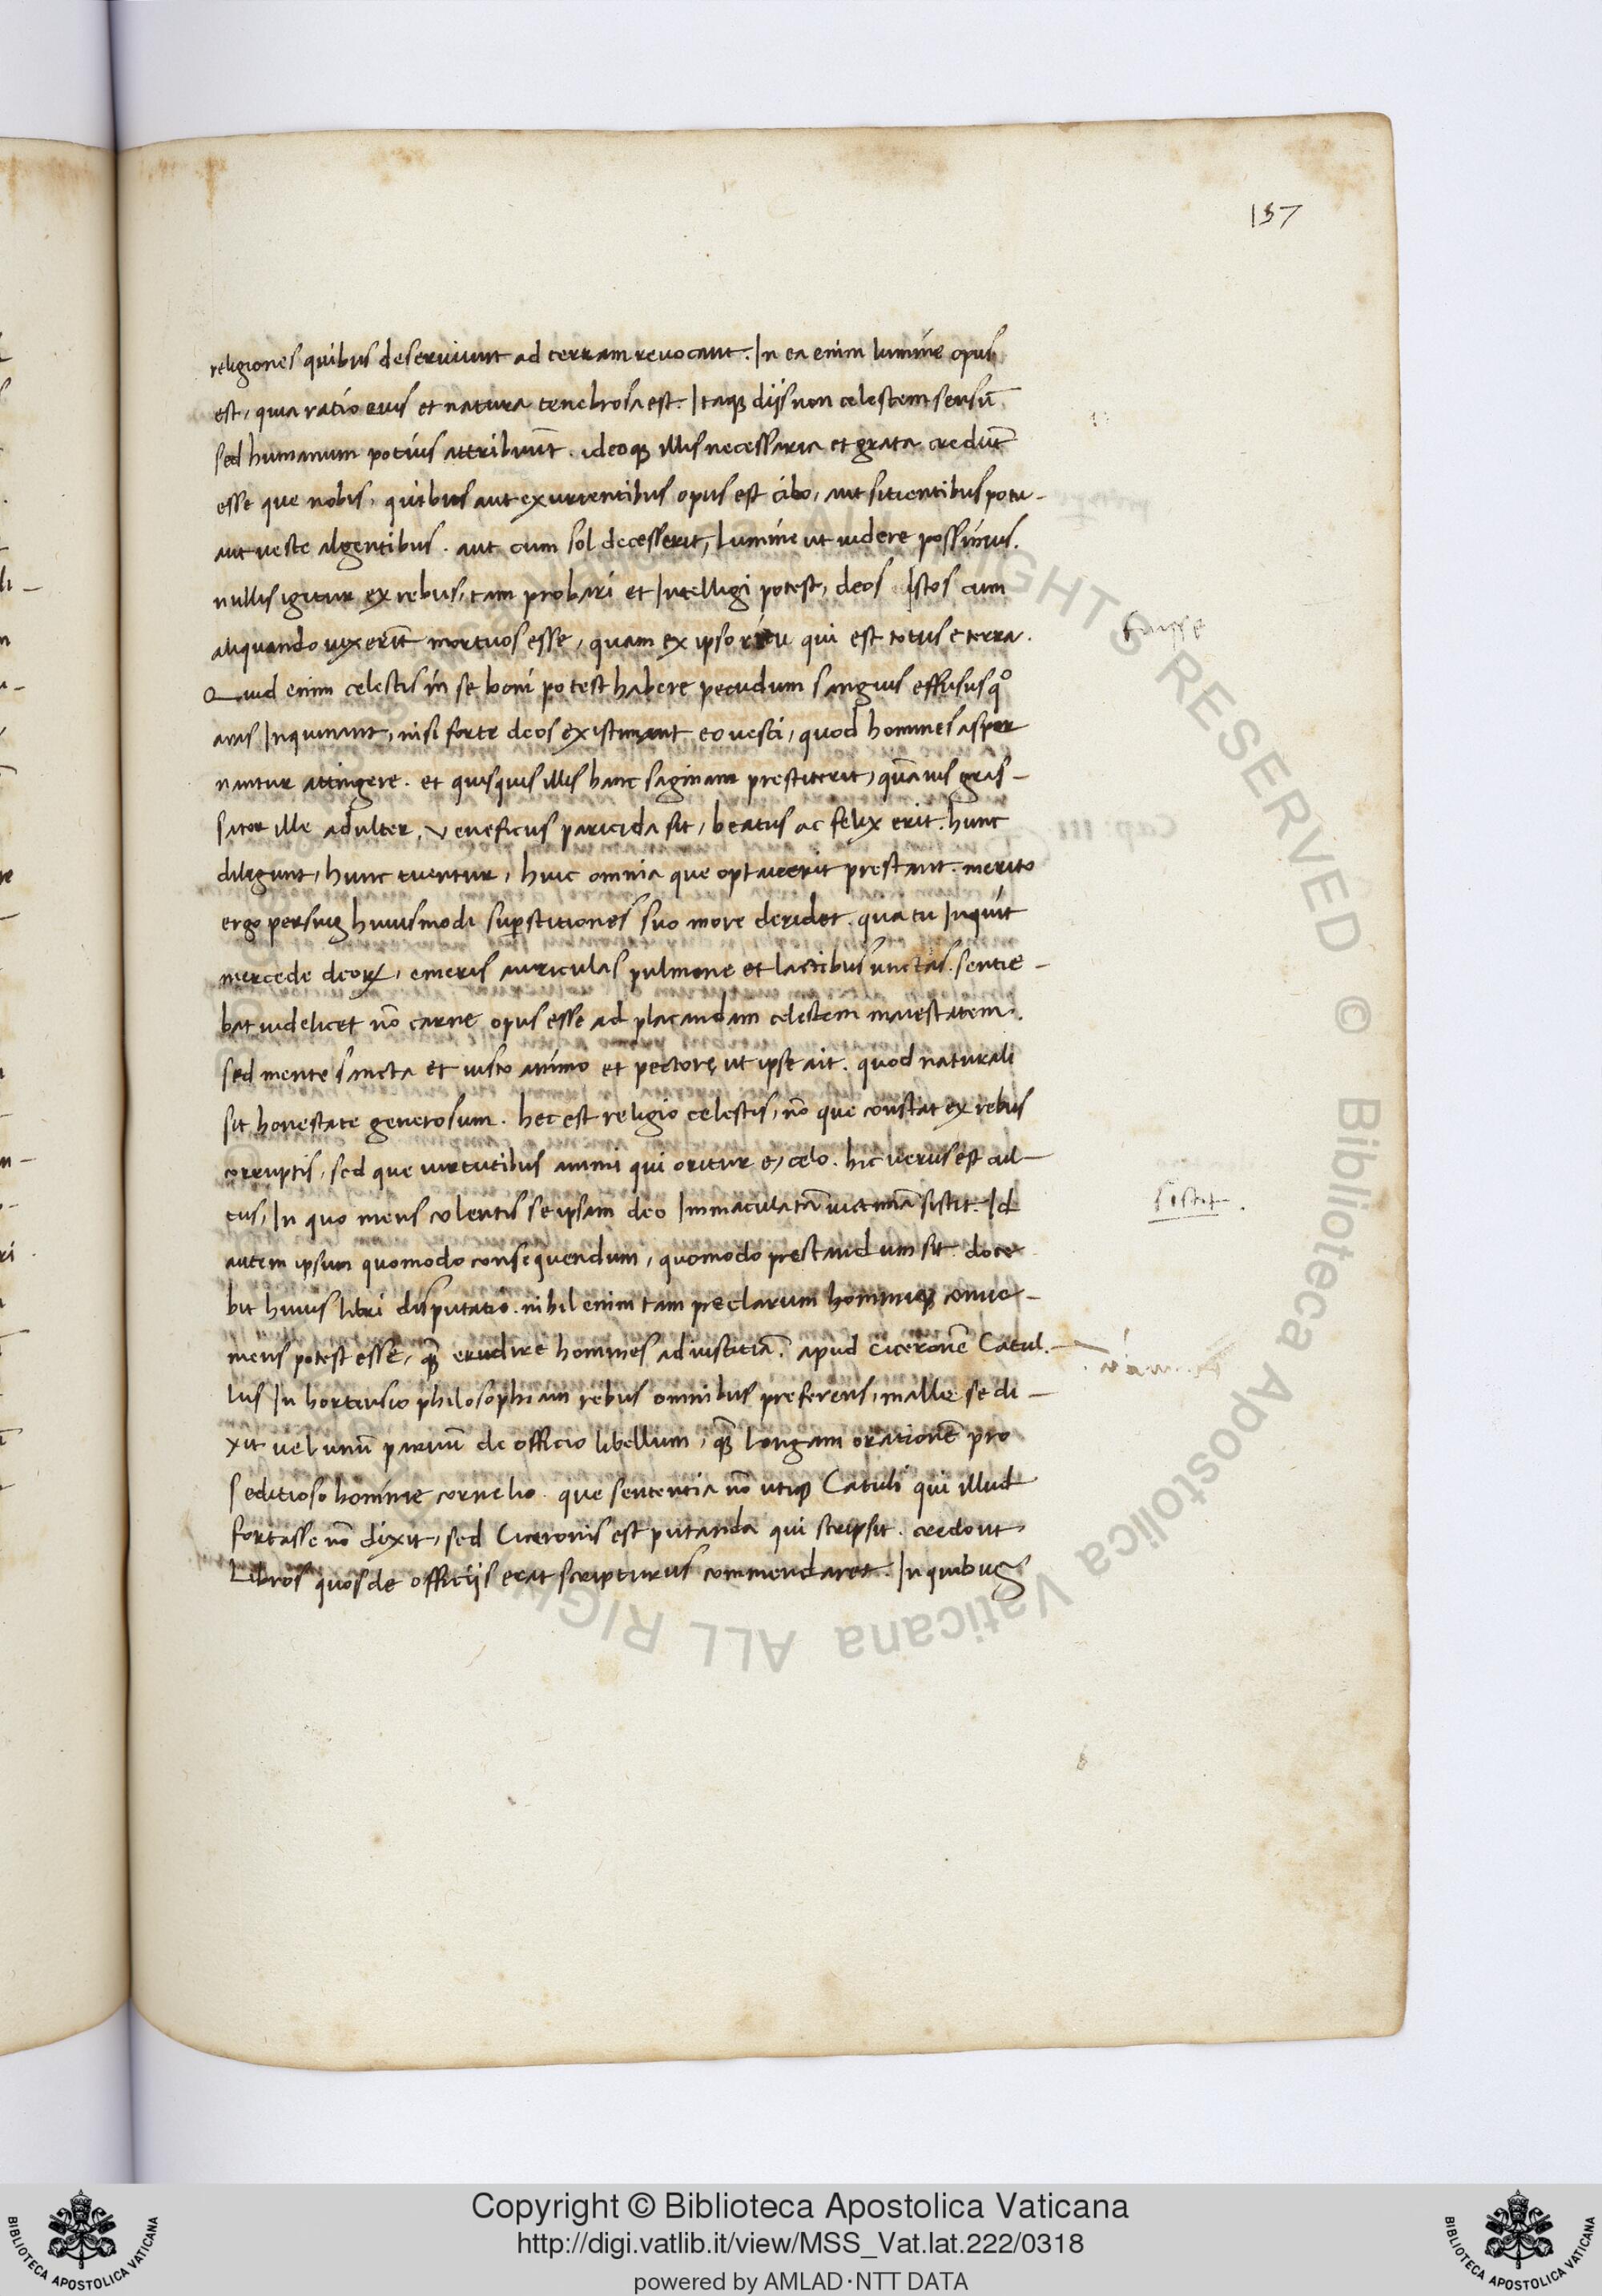 157
religiones quibus deseruiunt ad terram reuocant. In ea enim lumine opus
est, quia ratio eius et natura tenebrosa est. Itaq; diis non celestem sensū
sed humanum potius attribuūt. ideoq; illis necessaria et grata credūt
esse que nobis, quibus aut exurientibus opus est cibo, aut sitientibus potu-
aut ueste algentibus. aut cum sol decesserit, Lumine ut uidere possimus.
nullis igitur ex rebus, tam probari et Intelligi potest, deos Istos cum
aliquando uixerīt mortuos esse, quam ex ipso ritu qui est totus e terra.
fuisse
Quid enim celestis in se boni potest habere pecudum sanguis effusus qo
aras Inquinant, nisi forte deos existimant eo uesci, quod homines asper
nantur attingere. et quisquis illis hanc saginam prestiterit, quāuis gras-
sator ille adulter, veneficus paricida sit, beatus ac felix erit. hunc
diligunt, hunc tuentur, huic omnia que optauerit prestant. merito
ergo persius huiusmodi suꝑstitiones suo more deridet. qua tu Inquit
mercede deoꝝ, emeris auriculas pulmone et lactibus unctas. sentie-
bat uidelicet nō carne opus esse ad placandam celestem maiestatem.
sed mente sancta et iusto animo et pectore ut ipse ait. quod naturali
sit honestate generosum. hec est religio celestis, nō que constat ex rebus
corruptis, sed que uirtutibus animi qui oritur e, celo. hic uerus est cul-
tus, In quo mens colentis se ipsam deo Immaculatā uictimā sistit. Id
sistit.
autem ipsum quomodo consequendum, quomodo prestandum sit doce
bit huius libri disputatio. nihil enim tam preclarum hominiq; conue-
niens potest esse, qꝫ erudire homines ad iustitiā. apud Ciceronē Catul.-
lus In hortensio philosophiam rebus omnibus preferens, malle se di-
xit uel unū paruū de officio libellum, qꝫ longam orationē pro
seditioso homine cornelio. que sententia nō utiq; Catuli qui illud
fortasse nō dixit, sed Ciceronis est putanda qui scripsit. credo ut
Libros quos de officiis erat scripturus commendaret. In quibus
Copyright © Biblioteca Apostolica Vaticana
http://digi.vatlib.it/view/MSS_Vat.lat.222/0318
powered by AMLAD·NTT DATA